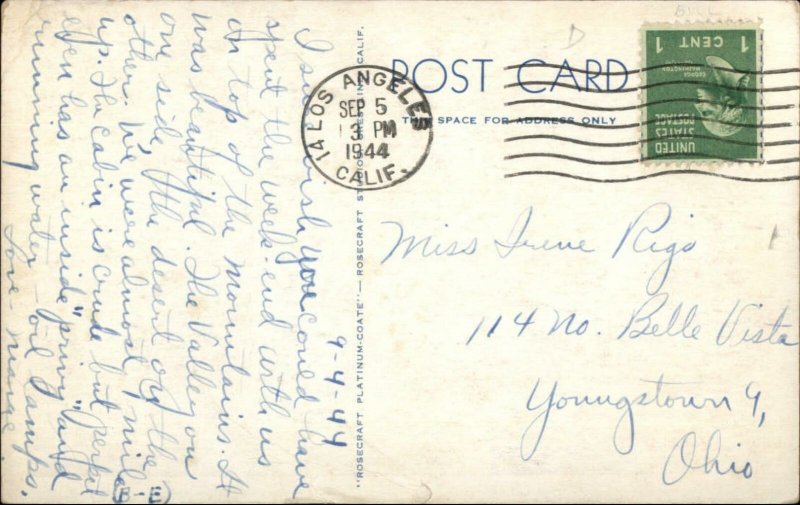 9-4-44
I sure wish you could have
spent the week-end with us
on top of the mountains. It
was beautiful. The Valley on
one side & the desert on the
other. We were almost 1 mile
up. The cabin is crude but perfect
even has an inside "privy" and
running water - oil lamps.
Love
"ROSECRAFT PLATINUM-COATE"—ROSECRAFT STUDIO, CREST INN, CALIF.
POST CARD
THIS SPACE FOR ADDRESS ONLY
14 LOS ANGELES
SEP 5
3 PM
1944
CALIF.
1 CENT 1
GEORGE WASHINGTON
UNITED STATES POSTAGE
Miss Irene Rigo
114 No. Belle Vista
Youngstown 9,
Ohio